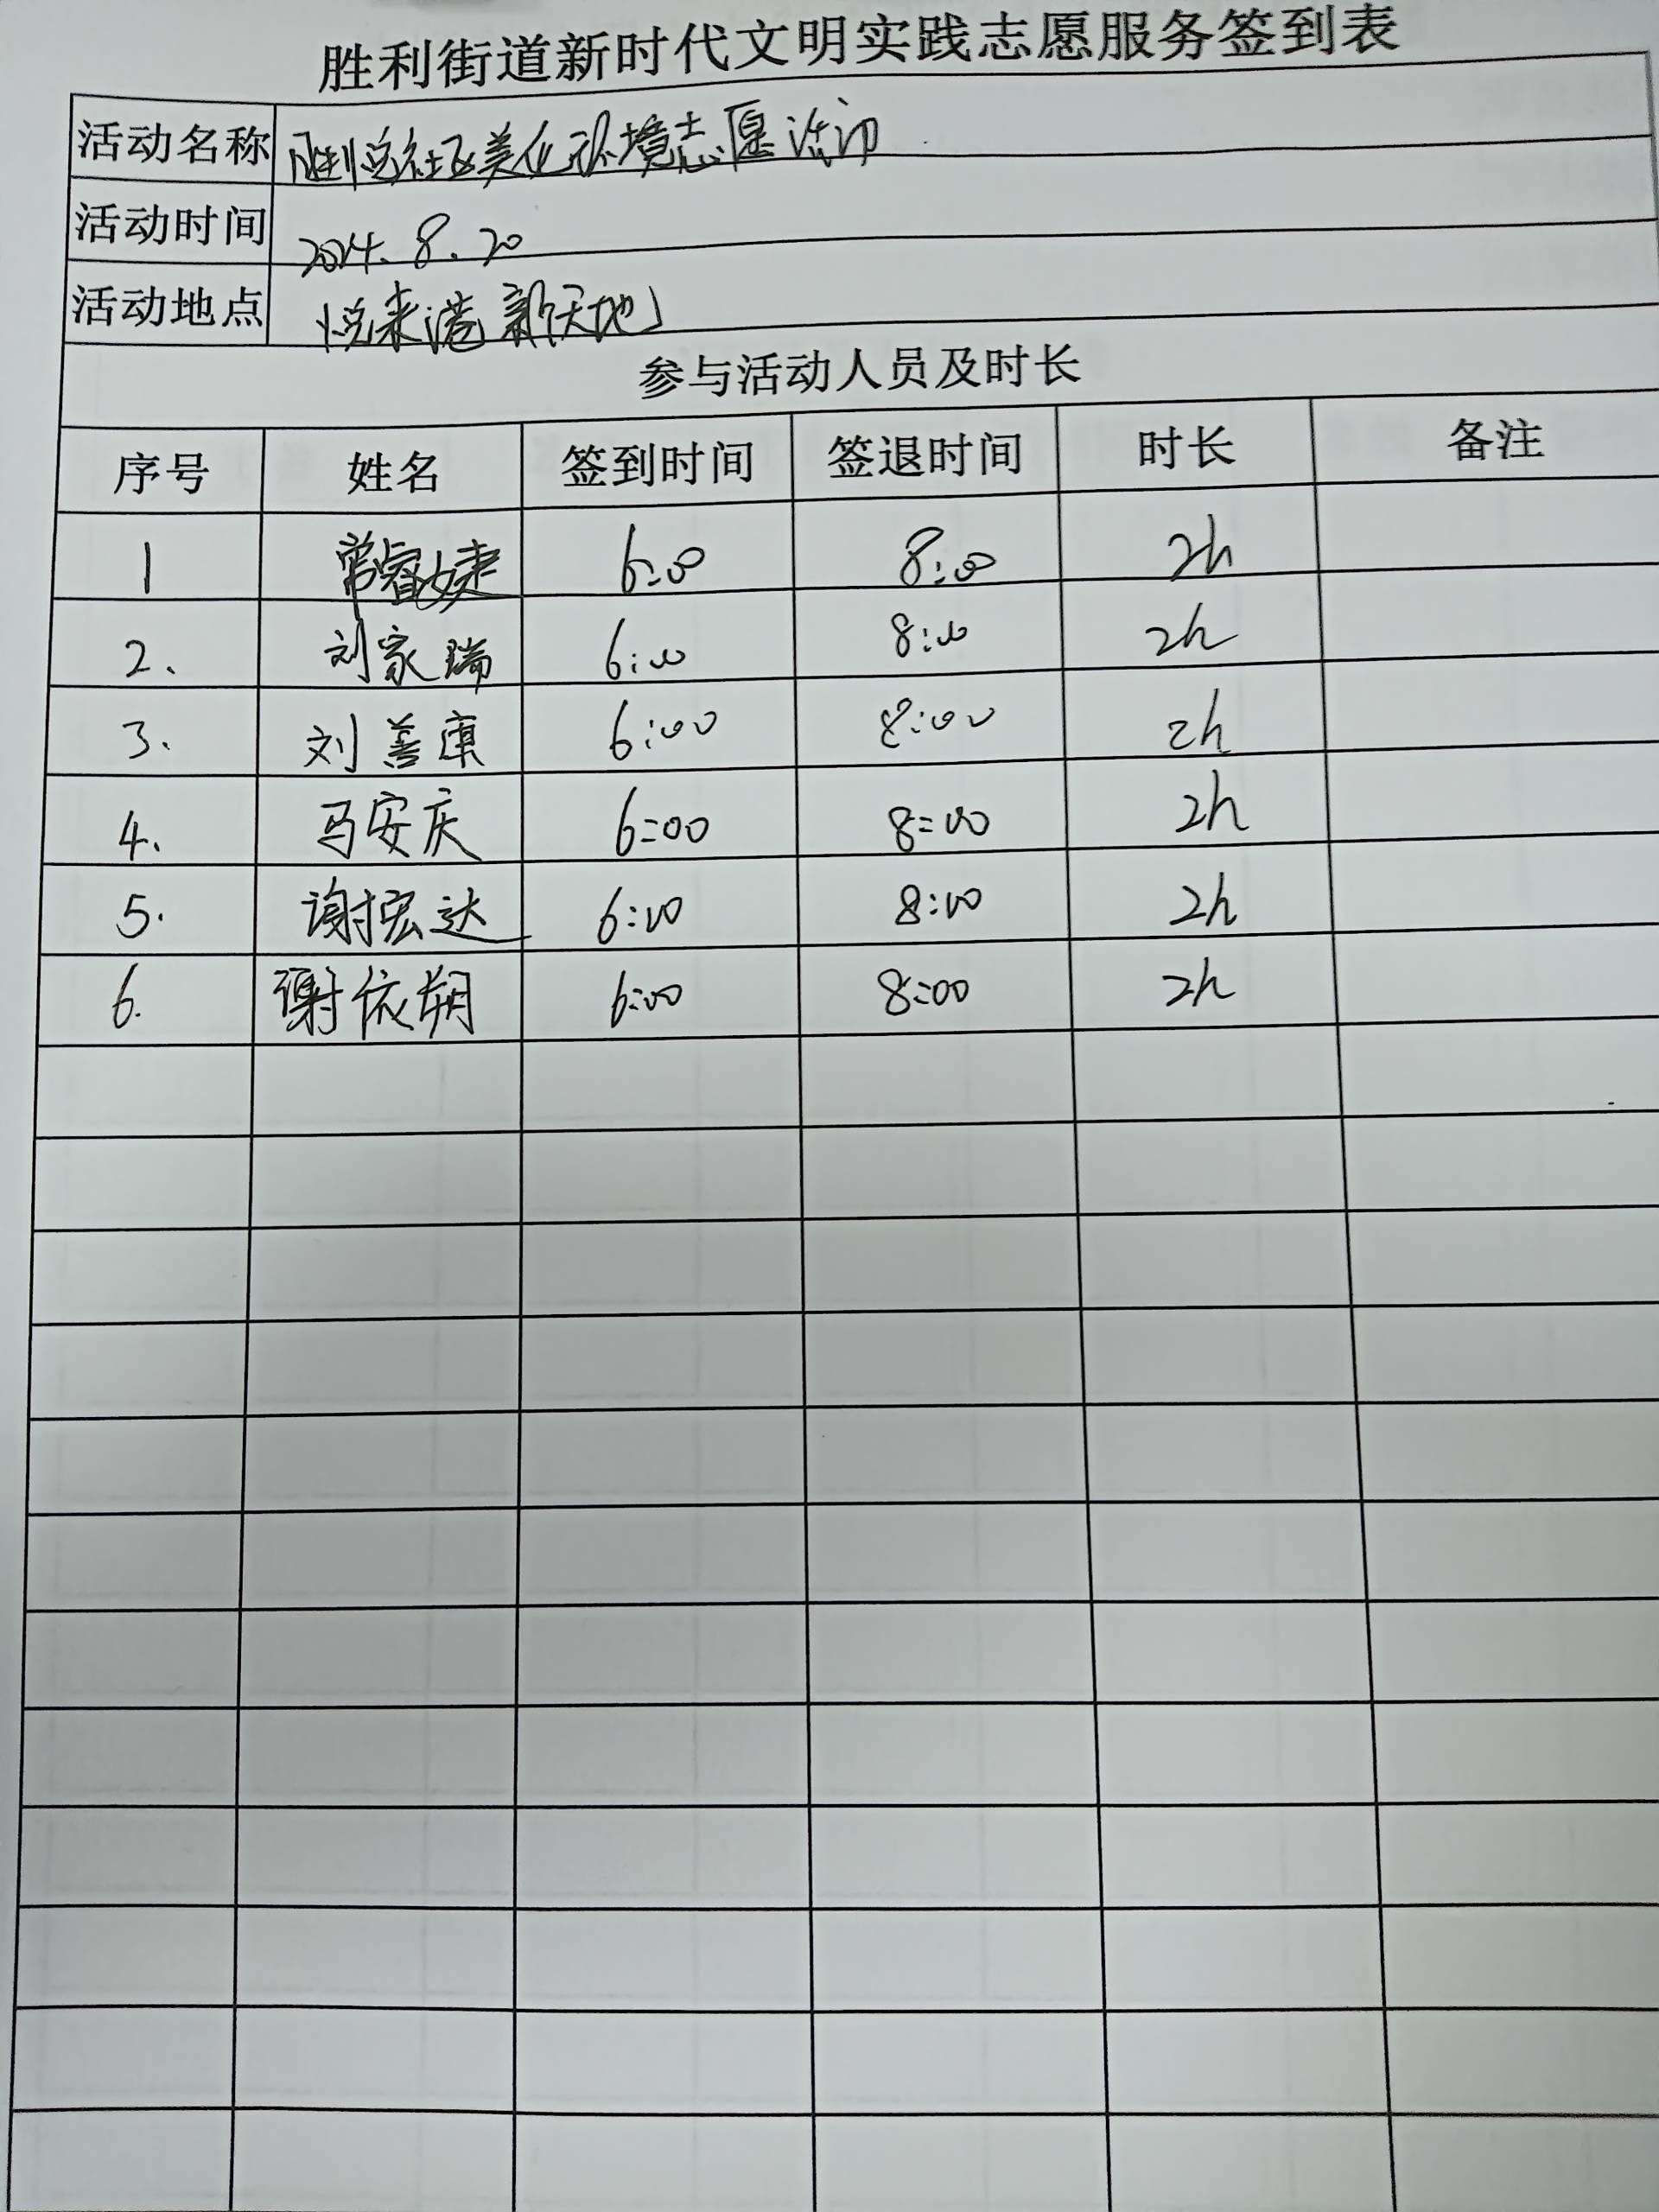 胜利街道新时代文明实践志愿服务签到表
活动名称 胜利社区美化环境志愿活动
活动时间 2024.8.20
活动地点 悦来港新天地
参与活动人员及时长
序号 姓名 签到时间 签退时间 时长 备注
1 常睿婕 6:00 8:00 2h
2. 刘家瑞 6:00 8:00 2h
3. 刘善康 6:00 8:00 2h
4. 马安庆 6:00 8:00 2h
5. 谢宏达 6:00 8:00 2h
6. 谢依朔 6:00 8:00 2h